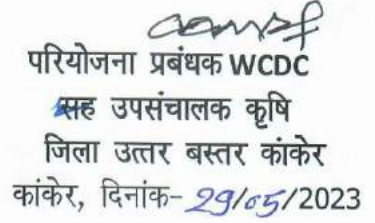 परियोजना प्रबंधक WCDC
सह उपसंचालक कृषि
जिला उत्तर बस्तर कांकेर
कांकेर, दिनांक- 29/05/2023